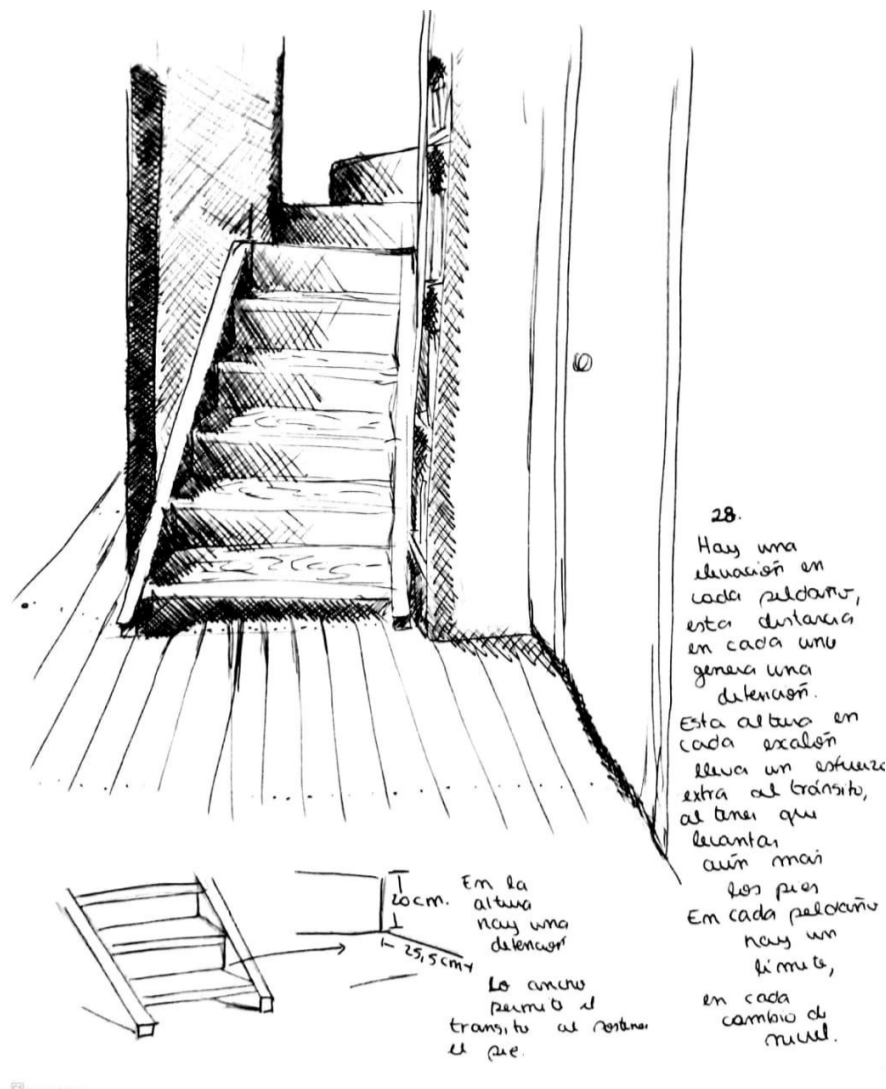 28.
Hay una
elevación en
cada peldaño,
esta distancia
en cada uno
genera una
detención.
Esta altura en
cada escalón
lleva un esfuerzo
extra al tránsito,
al tener que
levantar
aún mas
los pies
En cada peldaño
hay un
límite,
en cada
cambio de
nivel.
20cm.
25,5cm
En la
altura
hay una
detención
Lo ancho
permite el
transito al sostener
el pie.